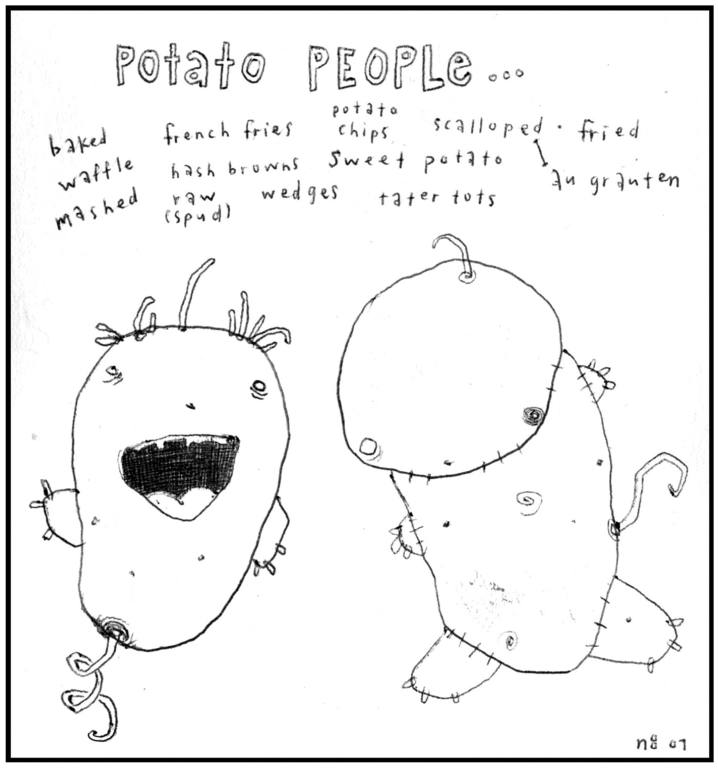 Potato PEOPLe...
baked french fries potato chips scalloped · fried
waffle hash browns sweet potato au grauten
mashed raw (spud) wedges tater tots
ng 07